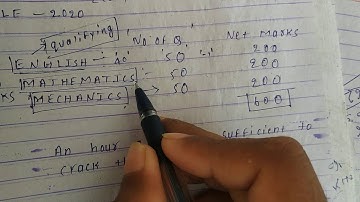 LE - 2020
qualifying
No of Q. Net Marks
ENGLISH - 50 200
MATHEMATICS - 50 200
MECHANICS → 50 200
600
An hour sufficient to
crack